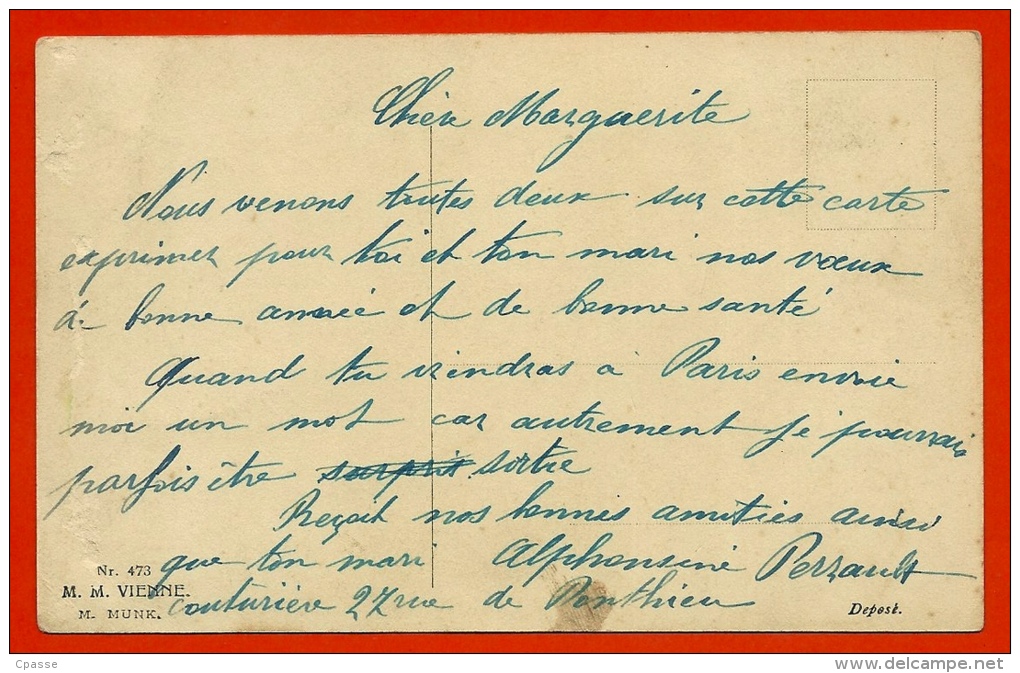 Chère Marguerite
Nous venons toutes deux sur cette carte
exprimer pour toi et ton mari nos vœux
de bonne année et de bonne santé
Quand tu viendras à Paris envoie
moi un mot car autrement je pourrais
parfois être surprit sortie
Reçoit nos bonnes amitiés ainsi
que ton mari Alphonsine Perrault
couturière 27 rue de Ponthieu
Nr. 473
M. M. VIENNE.
M. MUNK.
Depost.
Cpasse
www.delcampe.net